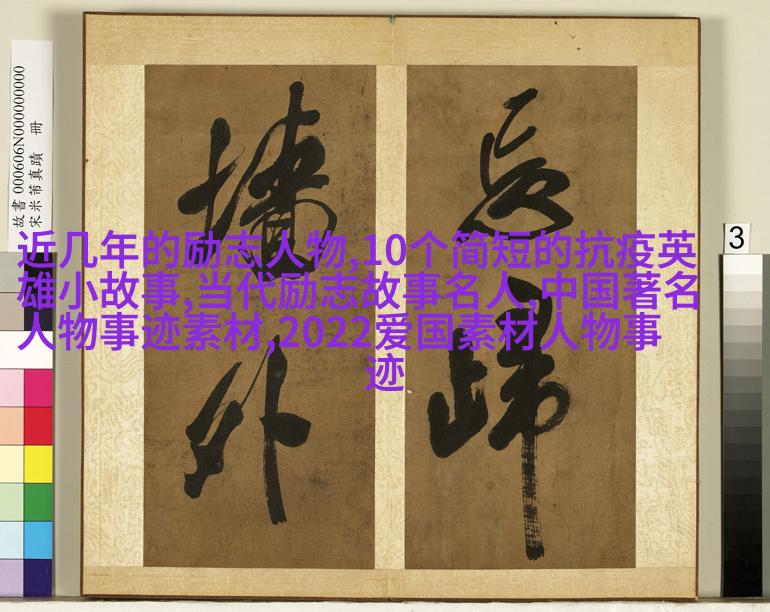 近几年的励志人物,10个简短的抗疫英
雄小故事,当代励志故事名人,中国著名
人物事迹素材,2022爱国素材人物事
迹
忘歸
墻外
故書 000606N000000000
宋米芾真蹟 冊
3